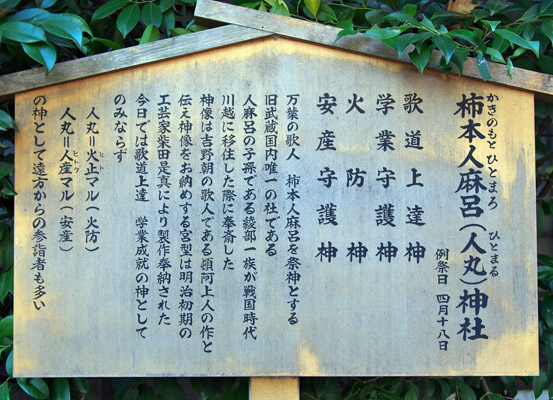 かきのもと ひとまろ ひとまる
柿本人麻呂(人丸)神社
例祭日 四月十八日
歌道上達神
学業守護神
火防神
安産守護神
万葉の歌人 柿本人麻呂を祭神とする
旧武蔵国内唯一の社である
人麻呂の子孫である綾部一族が戦国時代
川越に移住した際に奉斎した
神像は吉野朝の歌人である頓阿上人の作と
伝え神像をお納めする宮型は明治初期の
工芸家柴田是真により製作奉納された
今日では歌道上達 学業成就の神として
のみならず
人丸=火止マル(火防)
ヒト
人丸=人産マル(安産)
ヒトウ
の神として遠方からの参詣者も多い